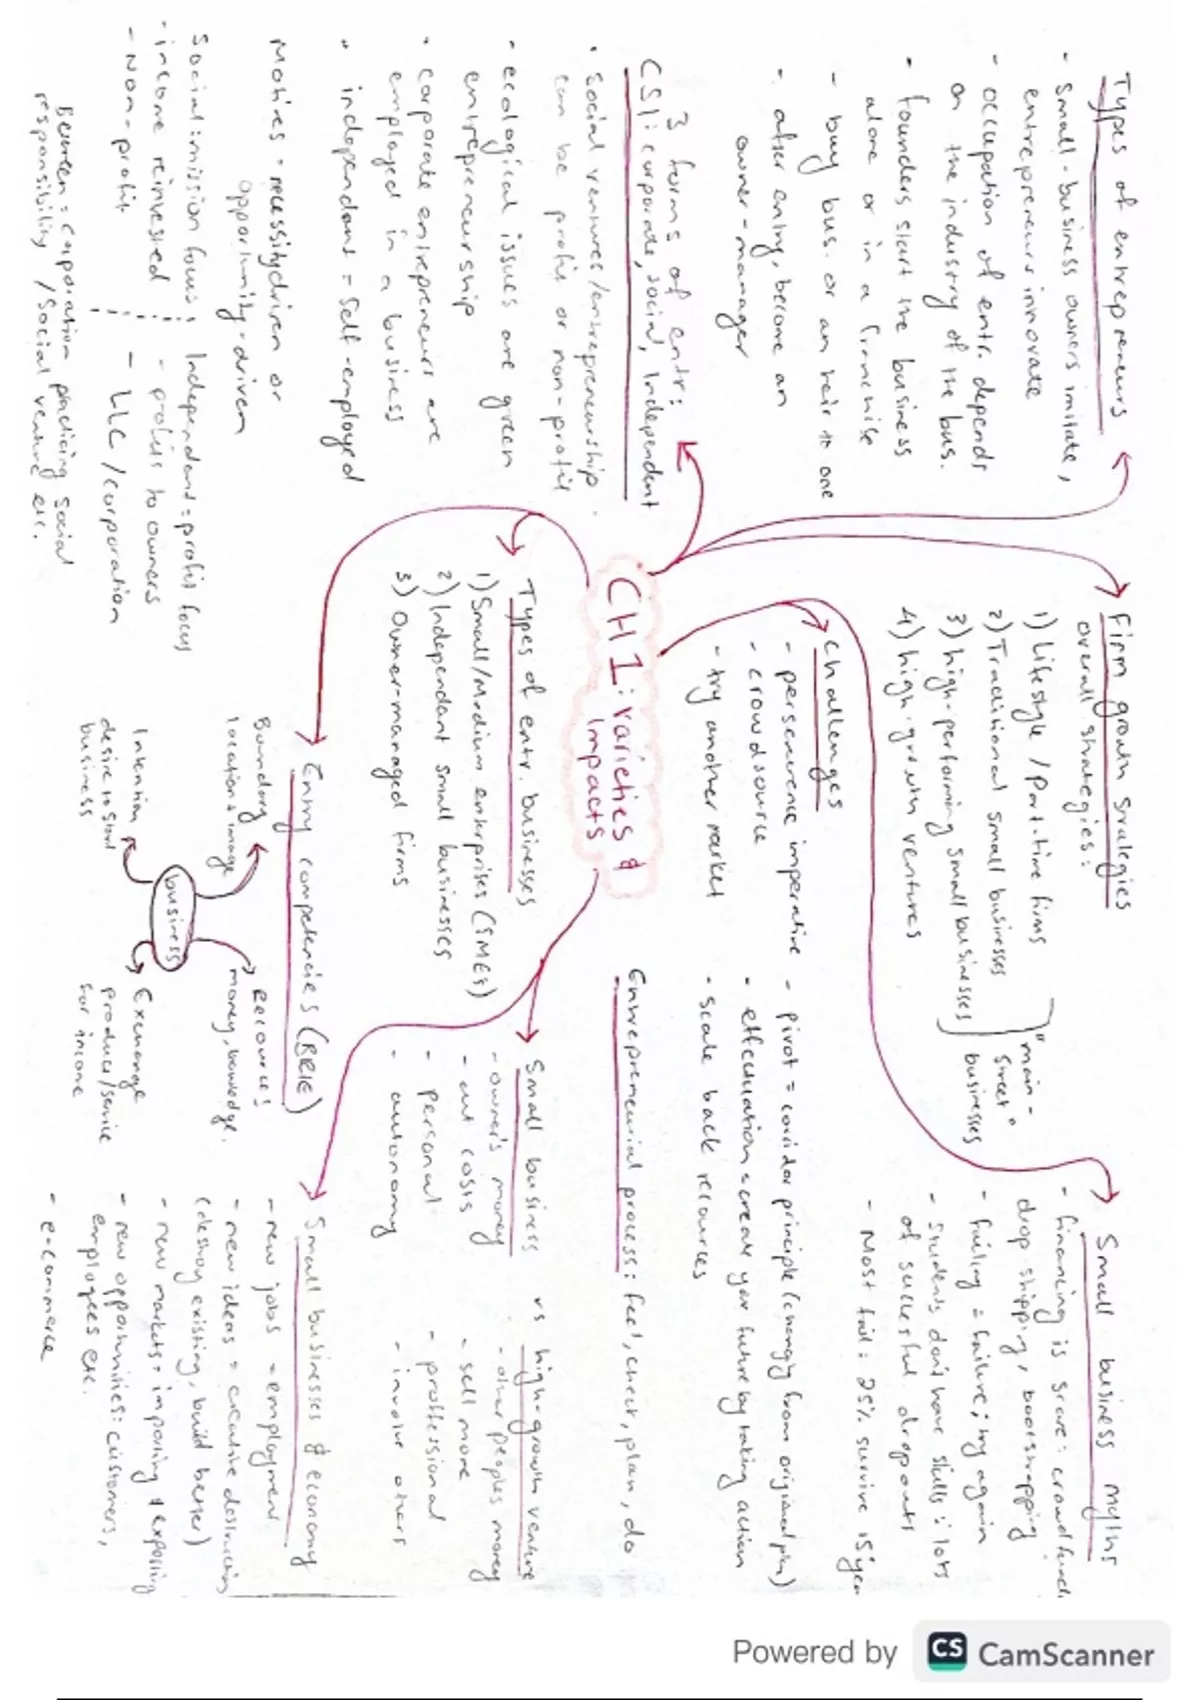 Types of entrepreneurs
- small-business owners imitate,
entrepreneurs innovate
- occupation of entr. depends
on the industry of the bus.
- founders start the business
alone or in a
- buy bus. or an heir to one
- after entry, become an
owner-manager
3 forms of entr:
CSI: corporate, social, Independent
• social ventures/entrepreneurship
can be profit or non-profit
- ecological issues are green
entrepreneurship
• corporate entrepreneurs are
employed in a business
• independant = self-employed
Motives = necessity driven or
opportunity-driven
Social: mission focus
- income reinvested
- Non-profit
Independant = profit focus
- profits to owners
- LLC / corporation
Between = corporation practicing social
responsibility / social venture etc.
Firm growth strategies
overall strategies:
1) Lifestyle / Part-time firms
2) Traditional small businesses
3) high-performing small businesses
4) high-growth ventures
"main-
street"
businesses
Challenges
- perserverence imperative
- crowdsource
- try another market
- pivot = corridor principle (changy from original plan)
- effectuation = create your future by taking action
- scale back recources
Small business myths
- financing is scarce: crowdfund
drop shipping, bootstrapping
- failing = failure; try again
- students don't have skills: lots
of succesful dropouts
- Most fail: 25% survive 15 year
CH 1: varieties &
Impacts
Entrepreneurial process: feel, check, plan, do
Types of entr. businesses
1) Small/Medium enterprises (SMEs)
2) Independant small businesses
3) Owner-managed firms
Small business vs high-growth venture
- owner's money
- cut costs
- personal
- autonomy
- other peoples money
- sell more
- proffessional
- involve others
Entry competencies (BRIE)
Boundary
location + image
Recources
money, knowledge.
business
Intention
desire to start
business
Exchange
product/service
for income
Small businesses & economy
- new jobs = employment
- new ideas = creative destruction
(destroy existing, build better)
- new markets = importing & exporting
- new opportunities: customers,
employees etc.
- e-commerce
Powered by CS CamScanner